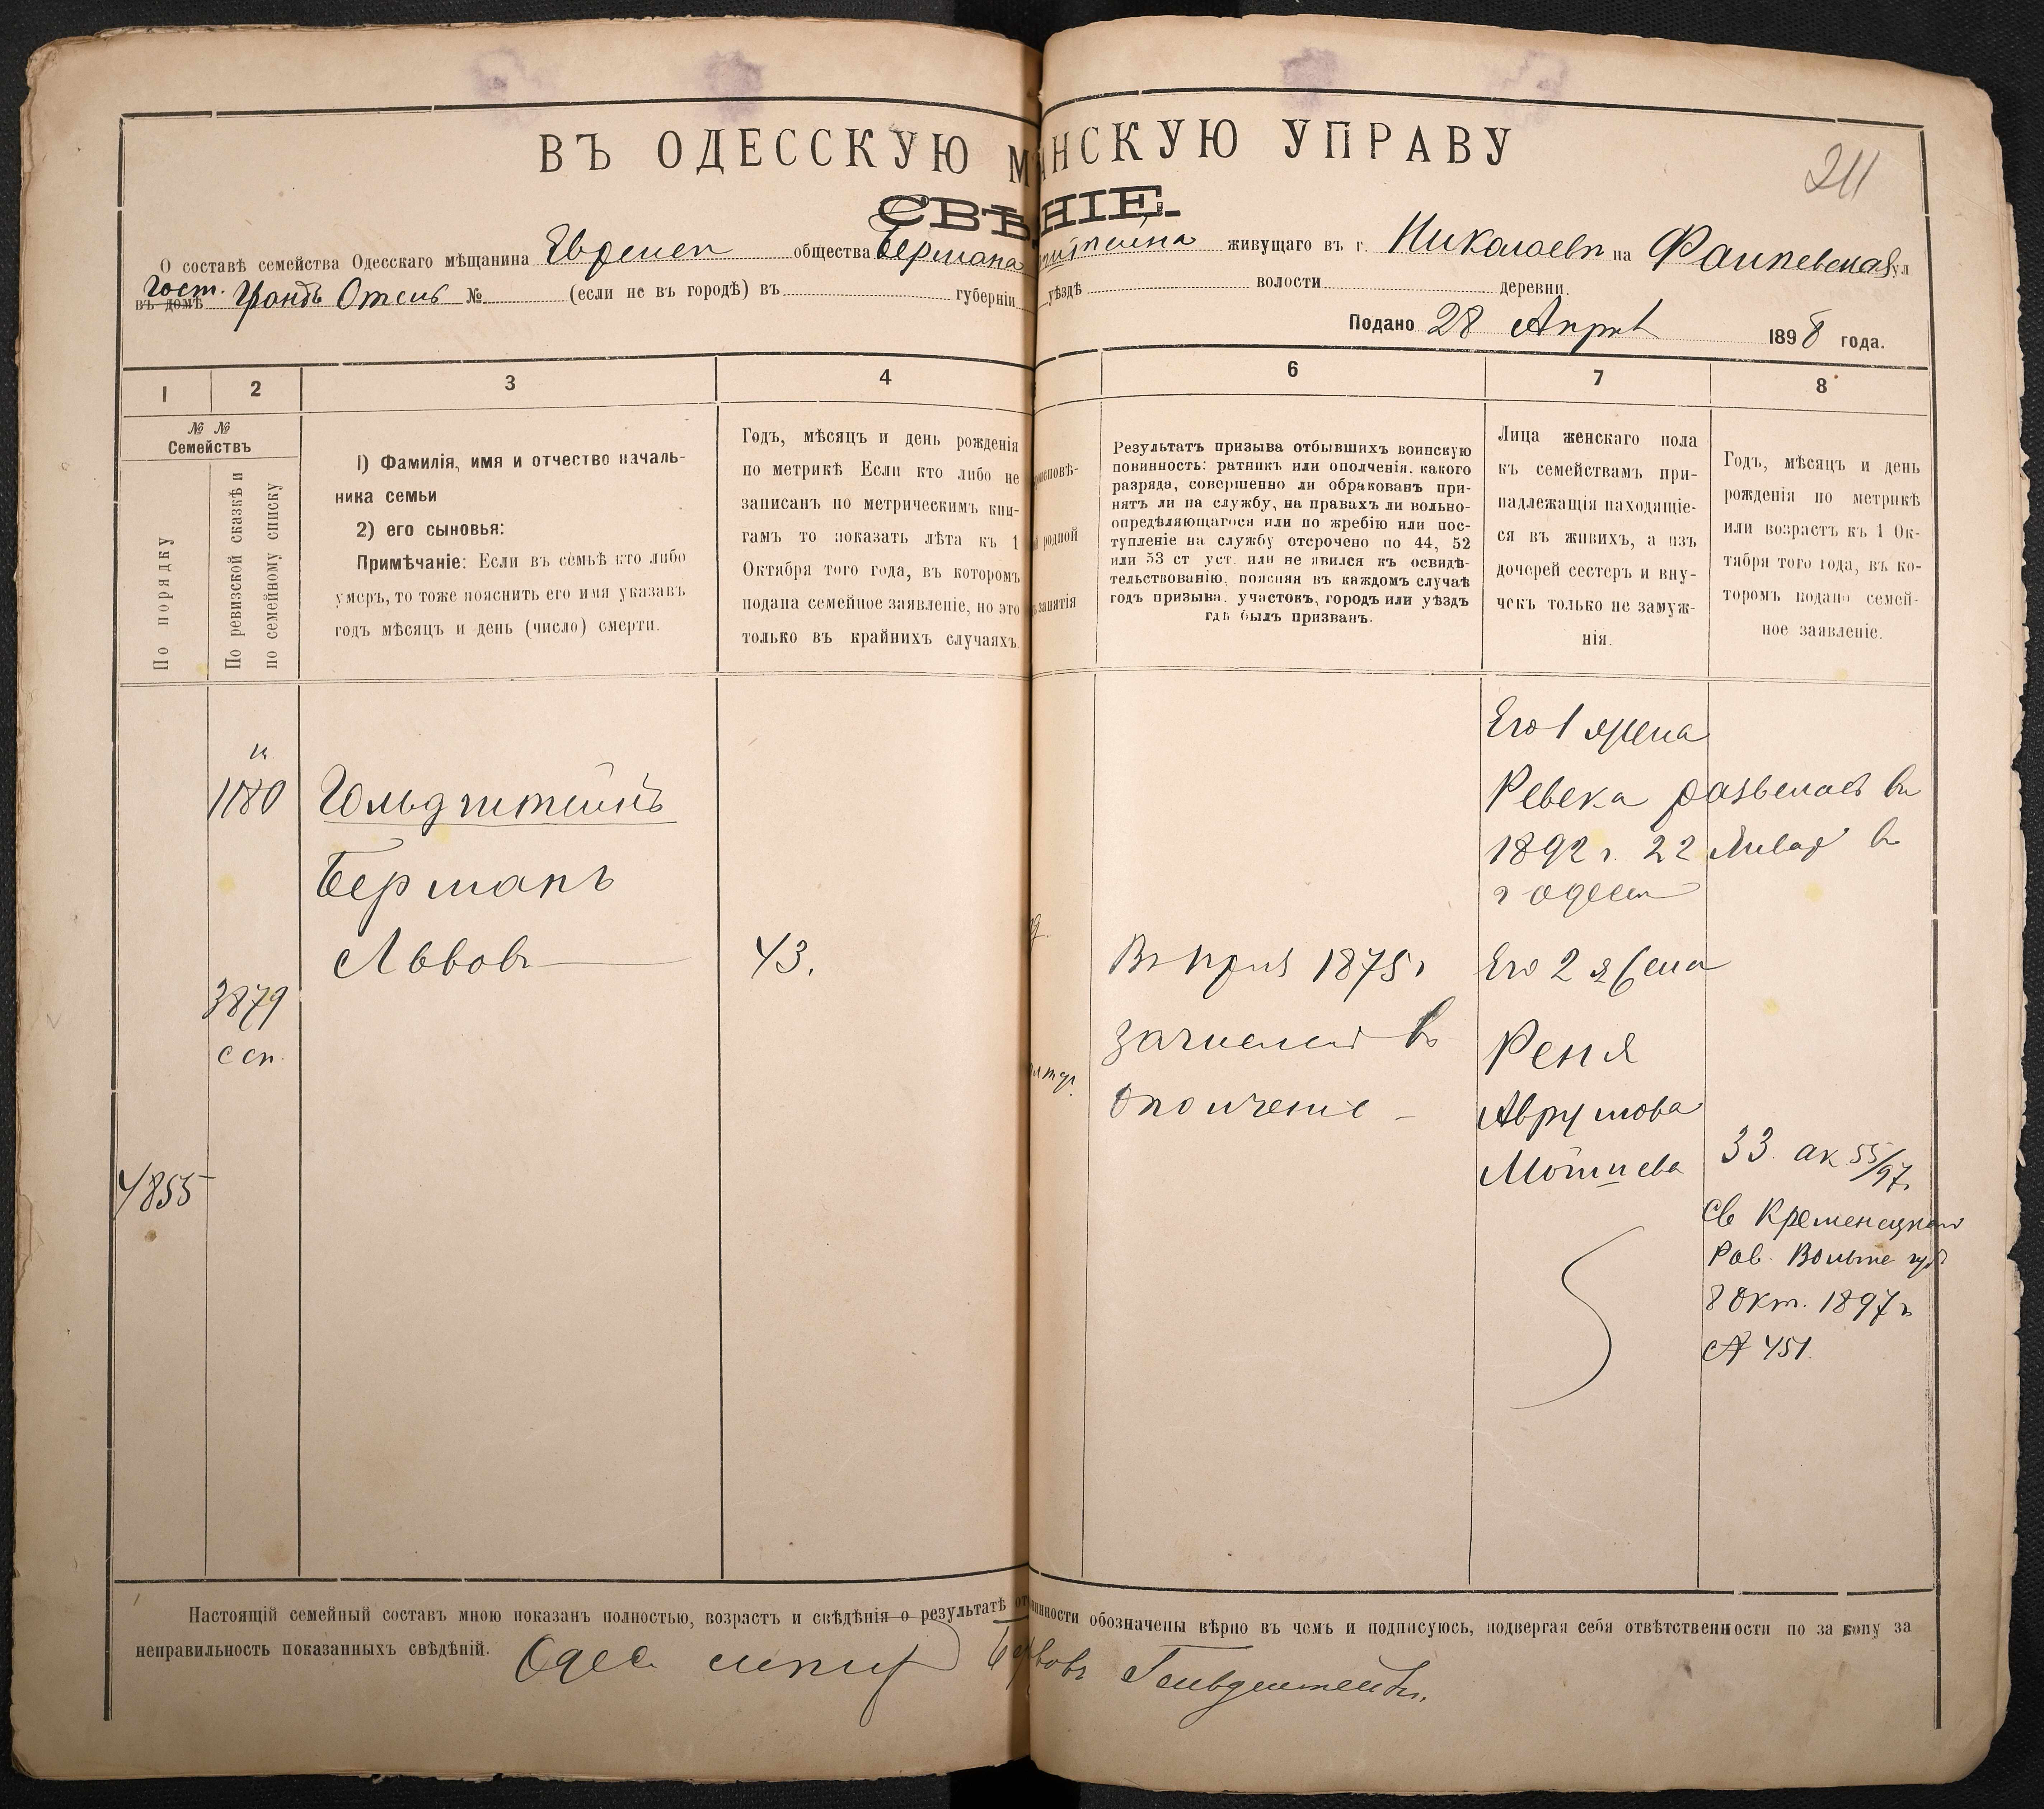 ВЪ ОДЕССКУЮ М АНСКУЮ УПРАВУ
211
СВѢ НІЕ.
О составѣ семейства Одесскаго мѣщанина Евреиск общества Бермана штейна живущаго въ г. Николаевѣ на ул
Гост.
въ домѣ Грандъ Отель № (если не въ городѣ) въ губерніи уѣздѣ волости деревни.
Подано 28 Апрѣл 1898 года.
1 2 3 4 6 7 8
№ №
Семействъ
По порядку
По ревизской сказкѣ и
по семейному списку
1) Фамилія, имя и отчество началь-
ника семьи
2) его сыновья:
Примѣчаніе: Если въ семьѣ кто либо
умеръ, то тоже пояснить его имя указавъ
годъ мѣсяцъ и день (число) смерти.
Годъ, мѣсяцъ и день рожденія
по метрикѣ Если кто либо не
записанъ по метрическимъ кни-
гамъ то показать лѣта къ 1
Октября того года, въ которомъ
подана семейное заявленіе, но это
только въ крайнихъ случаяхъ
роисповѣ-
родной
занятія
Результатъ призыва отбывшихъ воинскую
повинность: ратникъ или ополченія. какого
разряда, совершенно ли обракованъ при-
нятъ ли на службу, на правахъ ли вольно-
опредѣляющагося или по жребію или пос-
тупленіе на службу отсрочено по 44, 52
или 53 ст уст. или не явился къ освидѣ-
тельствованію, поясняя въ каждомъ случаѣ
годъ призыва. участокъ, городъ или уѣздъ
гдѣ былъ призванъ.
Лица женскаго пола
къ семействамъ при-
надлежащія находящіе-
ся въ живихъ, а изъ
дочерей сестеръ и вну-
чекъ только не замуж-
нія.
Годъ, мѣсяцъ и день
рожденія по метрикѣ
или возрастъ къ 1 Ок-
тября того года, въ ко-
торомъ подано семей-
ное заявленіе.
1180
Гольдштейнъ
Берманъ
Львовъ
43.
3879
ссп.
4855
Въ приз 1875 г
зачислен въ
ополчение
Его 1 жена
Ревека развелась въ
1892 г. 22 Январ в
г Одесс
Его 2 жена
Реня
Аврумова
33. ак 55/97.
Св Кременецкаго
Рав. Волынс губ
8 Окт. 1897 г
№ 451.
Настоящій семейный составъ мною показанъ полностью, возрастъ и свѣдѣнія о результатѣ от инности обозначены вѣрно въ чемъ и подписуюсь, подвергая себя отвѣтственности по закону за
неправильность показанныхъ свѣдѣній.
Одес Львовъ Гольдштейнъ.